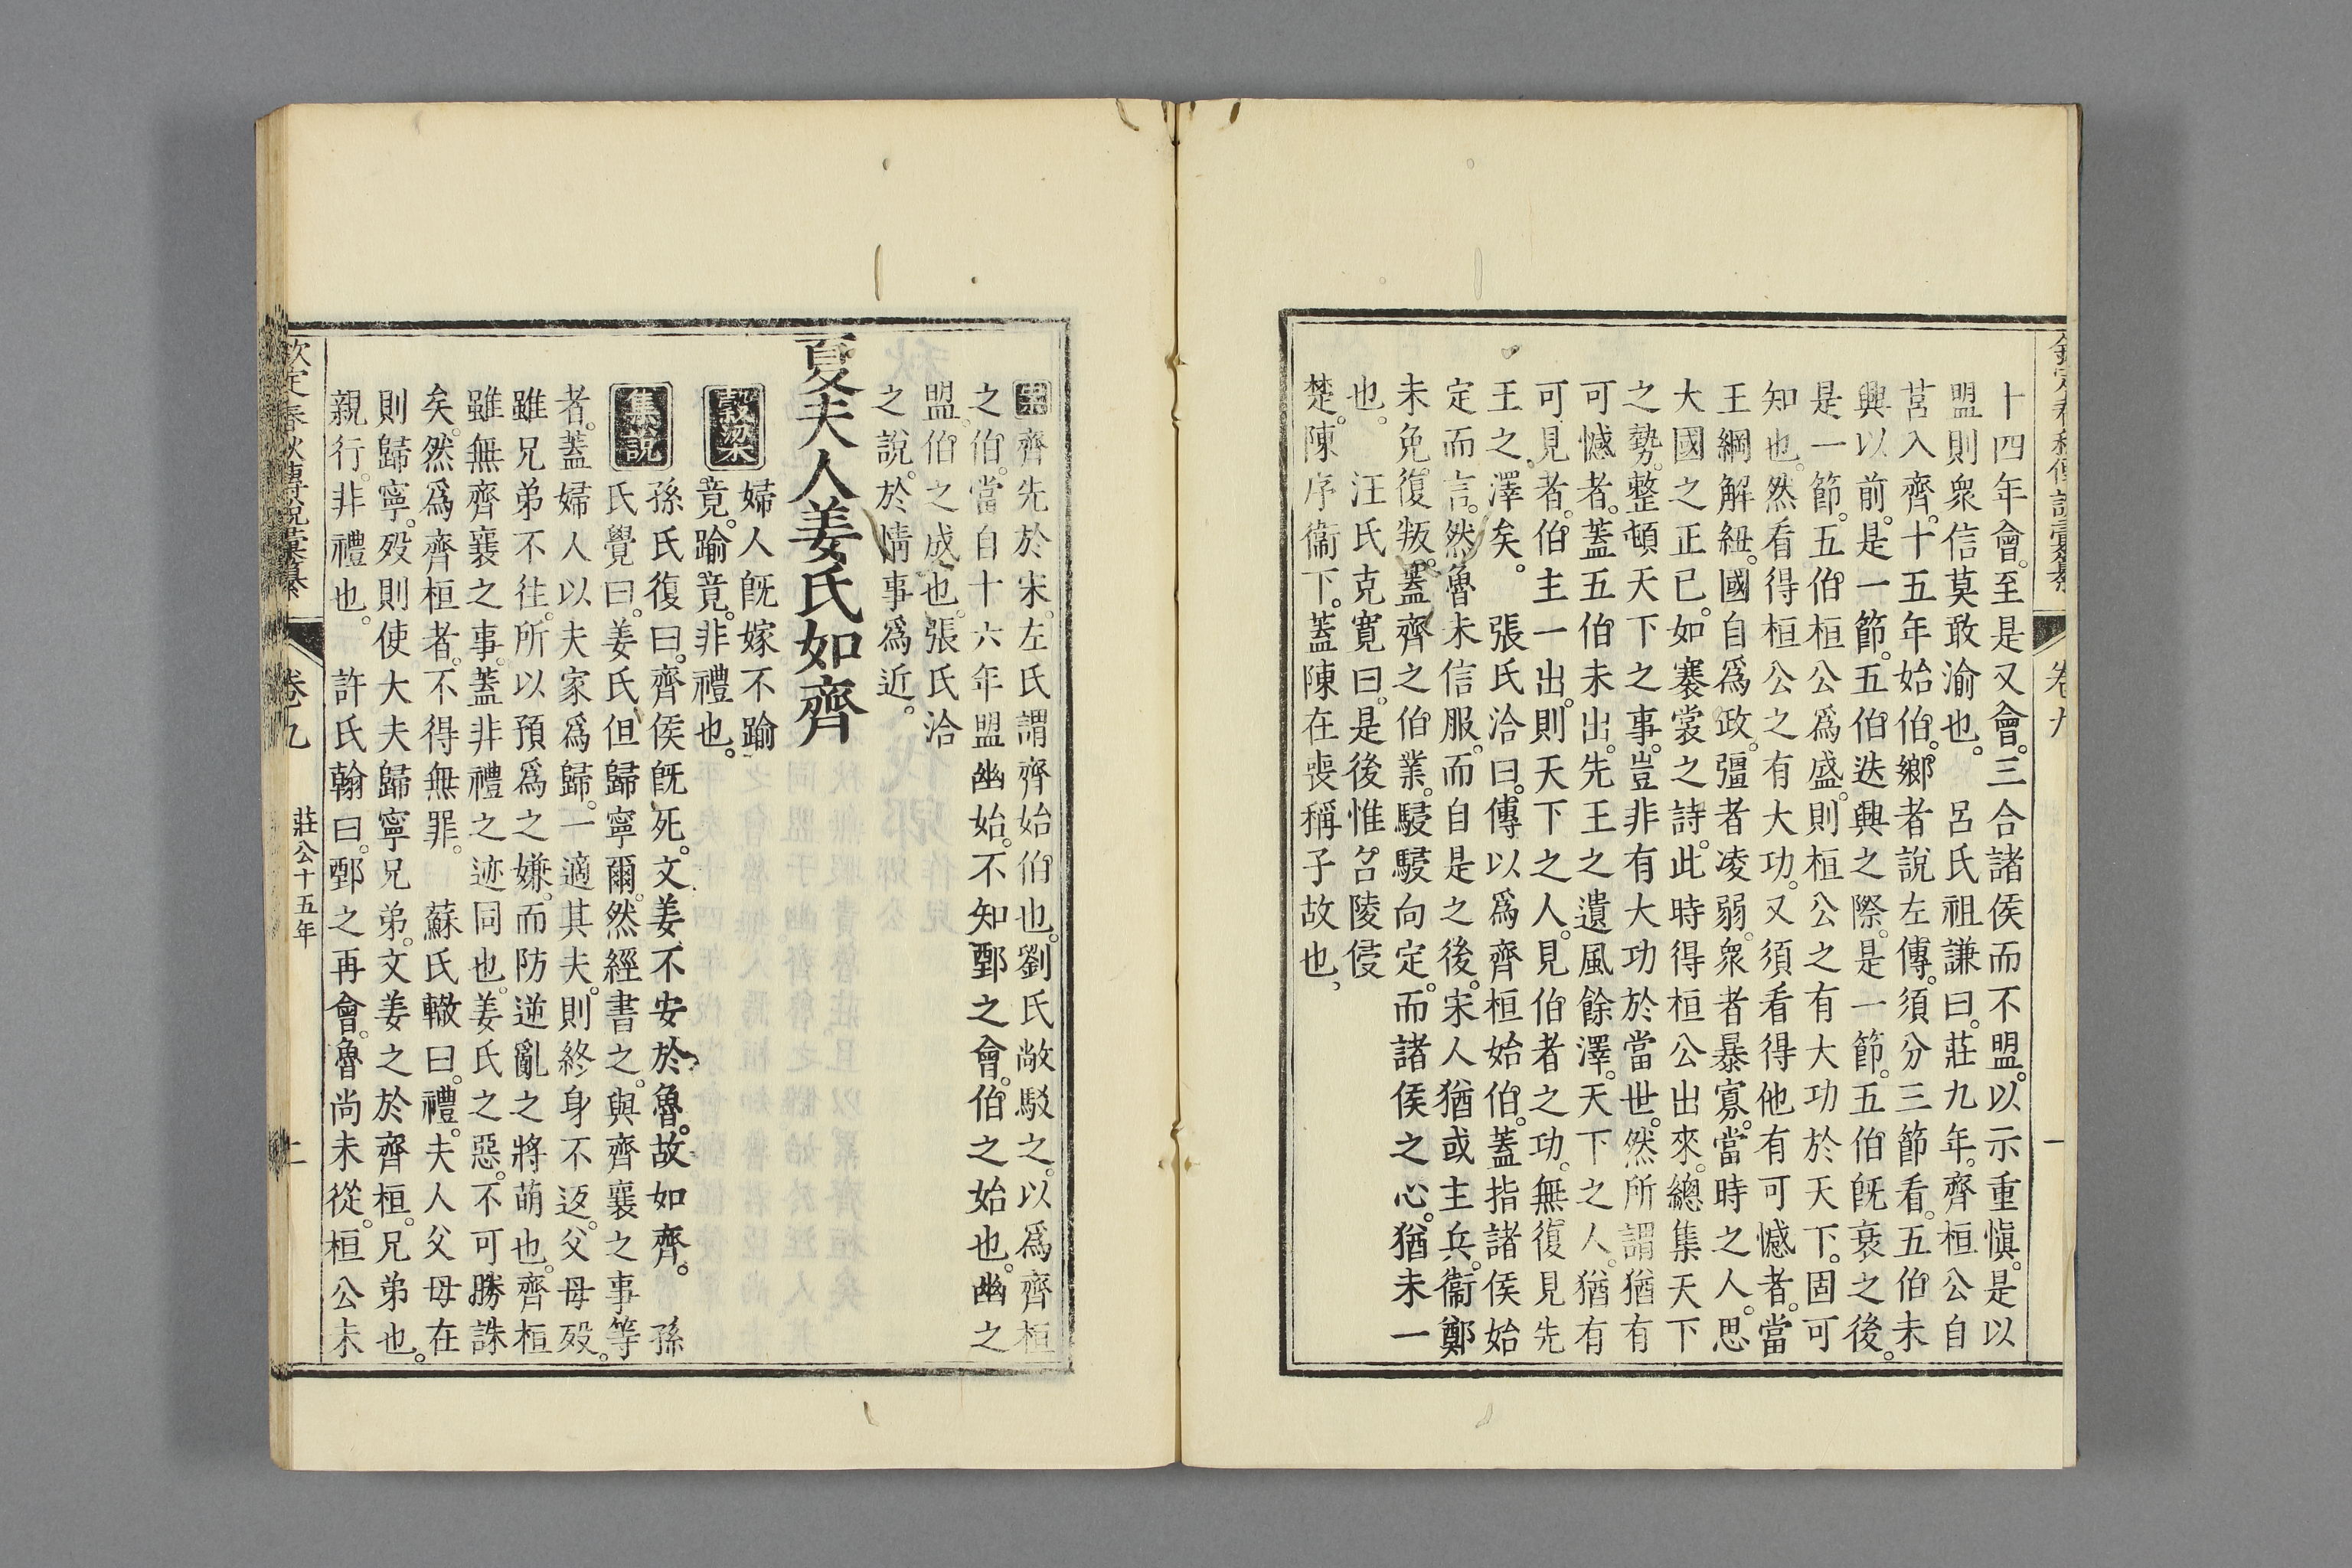 卷九
一
十四年會。至是又會。三合諸侯而不盟。以示重慎。是以
盟則衆信莫敢渝也。 呂氏祖謙曰。莊九年。齊桓公自
莒入齊。十五年始伯。鄉者說左傳。須分三節看。五伯未
興以前。是一節。五伯迭興之際。是一節。五伯旣衰之後。
是一節。五伯桓公爲盛。則桓公之有大功於天下。固可
知也。然看得桓公之有大功。又須看得他有可憾者。當
王綱解紐。國自爲政。彊者凌弱。衆者暴寡。當時之人。思
大國之正已。如褰裳之詩。此時得桓公出來。總集天下
之勢。整頓天下之事。豈非有大功於當世。然所謂猶有
可憾者。蓋五伯未出。先王之遺風餘澤。天下之人。猶有
可見者。伯主一出。則天下之人。見伯者之功。無復見先
王之澤矣。 張氏洽曰。傳以爲齊桓始伯。蓋指諸侯始
定而言。然魯未信服。而自是之後。宋人猶或主兵。衞鄭
未免復叛。蓋齊之伯業。駸駸向定。而諸侯之心。猶未一
也。 汪氏克寬曰。是後惟召陵侵
楚。陳序衞下。蓋陳在喪稱子故也。
案齊先於宋。左氏謂齊始伯也。劉氏敞駁之。以爲齊桓
之伯。當自十六年盟幽始。不知鄄之會。伯之始也。幽之
盟。伯之成也。張氏洽
之說。於情事爲近。
夏夫人姜氏如齊
穀梁
婦人旣嫁不踰
竟。踰竟。非禮也。
集說
孫氏復曰。齊侯旣死。文姜不安於魯。故如齊。 孫
氏覺曰。姜氏但歸寧爾。然經書之。與齊襄之事等
者。蓋婦人以夫家爲歸。一適其夫。則終身不返。父母歿。
雖兄弟不往。所以預爲之嫌。而防逆亂之將萌也。齊桓
雖無齊襄之事。蓋非禮之迹同也。姜氏之惡。不可勝誅
矣。然爲齊桓者。不得無罪。 蘇氏轍曰。禮。夫人父母在
則歸寧。歿則使大夫歸寧兄弟。文姜之於齊桓。兄弟也。
親行。非禮也。 許氏翰曰。鄄之再會。魯尚未從。桓公未
欽定春秋傳說彙纂
卷九
莊公十五年